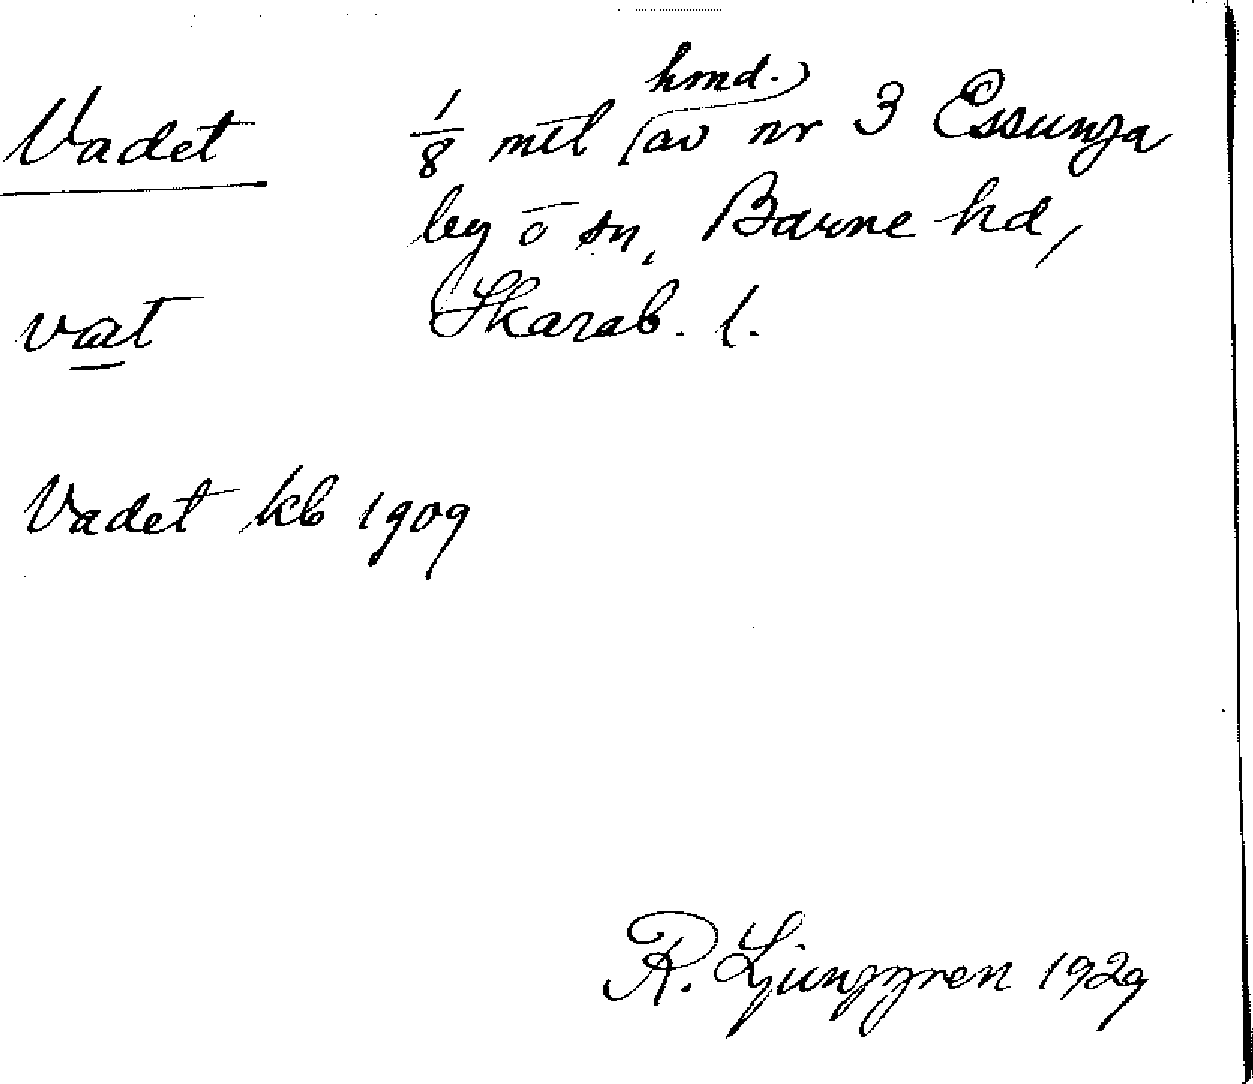 Vadet 1/8 mtl hmd. av nr 3 Essunga
by o sn, Barne hd,
vat Skarab. l.
Vadet kb 1909
R. Ljunggren 1929